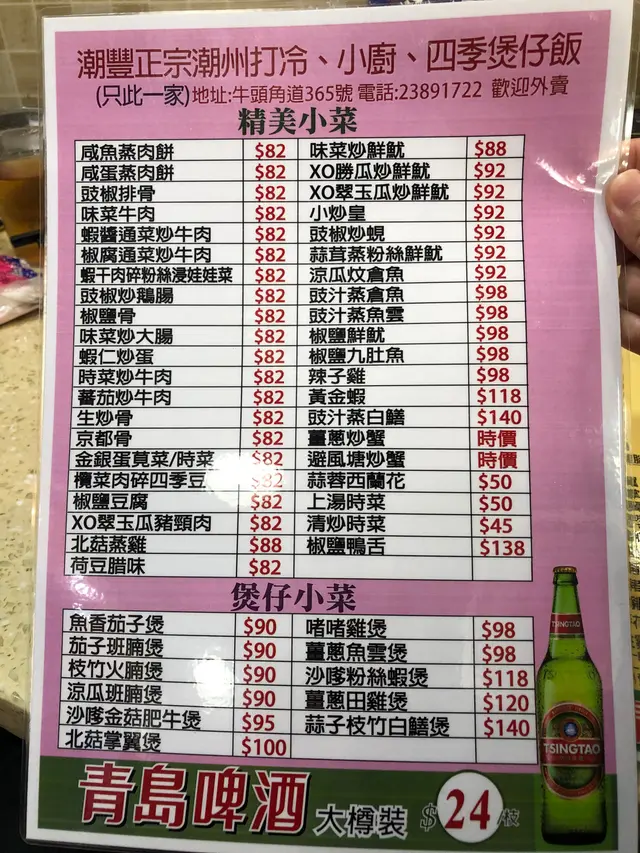 潮豐正宗潮州打冷、小廚、四季煲仔飯
(只此一家)地址:牛頭角道365號 電話:23891722 歡迎外賣
精美小菜
咸魚蒸肉餅 $82 味菜炒鮮魷 $88
咸蛋蒸肉餅 $82 XO勝瓜炒鮮魷 $92
豉椒排骨 $82 XO翠玉瓜炒鮮魷 $92
味菜牛肉 $82 小炒皇 $92
蝦醬通菜炒牛肉 $82 豉椒炒蜆 $92
椒腐通菜炒牛肉 $82 蒜茸蒸粉絲鮮魷 $92
蝦干肉碎粉絲浸娃娃菜 $82 涼瓜炆倉魚 $92
豉椒炒鵝腸 $82 豉汁蒸倉魚 $98
椒鹽骨 $82 豉汁蒸魚雲 $98
味菜炒大腸 $82 椒鹽鮮魷 $98
蝦仁炒蛋 $82 椒鹽九肚魚 $98
時菜炒牛肉 $82 辣子雞 $98
蕃茄炒牛肉 $82 黃金蝦 $118
生炒骨 $82 豉汁蒸白鱔 $140
京都骨 $82 薑蔥炒蟹 時價
金銀蛋莧菜/時菜 $82 避風塘炒蟹 時價
欖菜肉碎四季豆 $82 蒜蓉西蘭花 $50
椒鹽豆腐 $82 上湯時菜 $50
XO翠玉瓜豬頸肉 $82 清炒時菜 $45
北菇蒸雞 $88 椒鹽鴨舌 $138
荷豆腊味 $82
煲仔小菜
魚香茄子煲 $90 啫啫雞煲 $98
茄子班腩煲 $90 薑蔥魚雲煲 $98
枝竹火腩煲 $90 沙嗲粉絲蝦煲 $118
涼瓜班腩煲 $90 薑蔥田雞煲 $120
沙嗲金菇肥牛煲 $95 蒜子枝竹白鱔煲 $140
北菇掌翼煲 $100
TSINGTAO
TSINGTAO
青島啤酒 大樽裝 $24枝